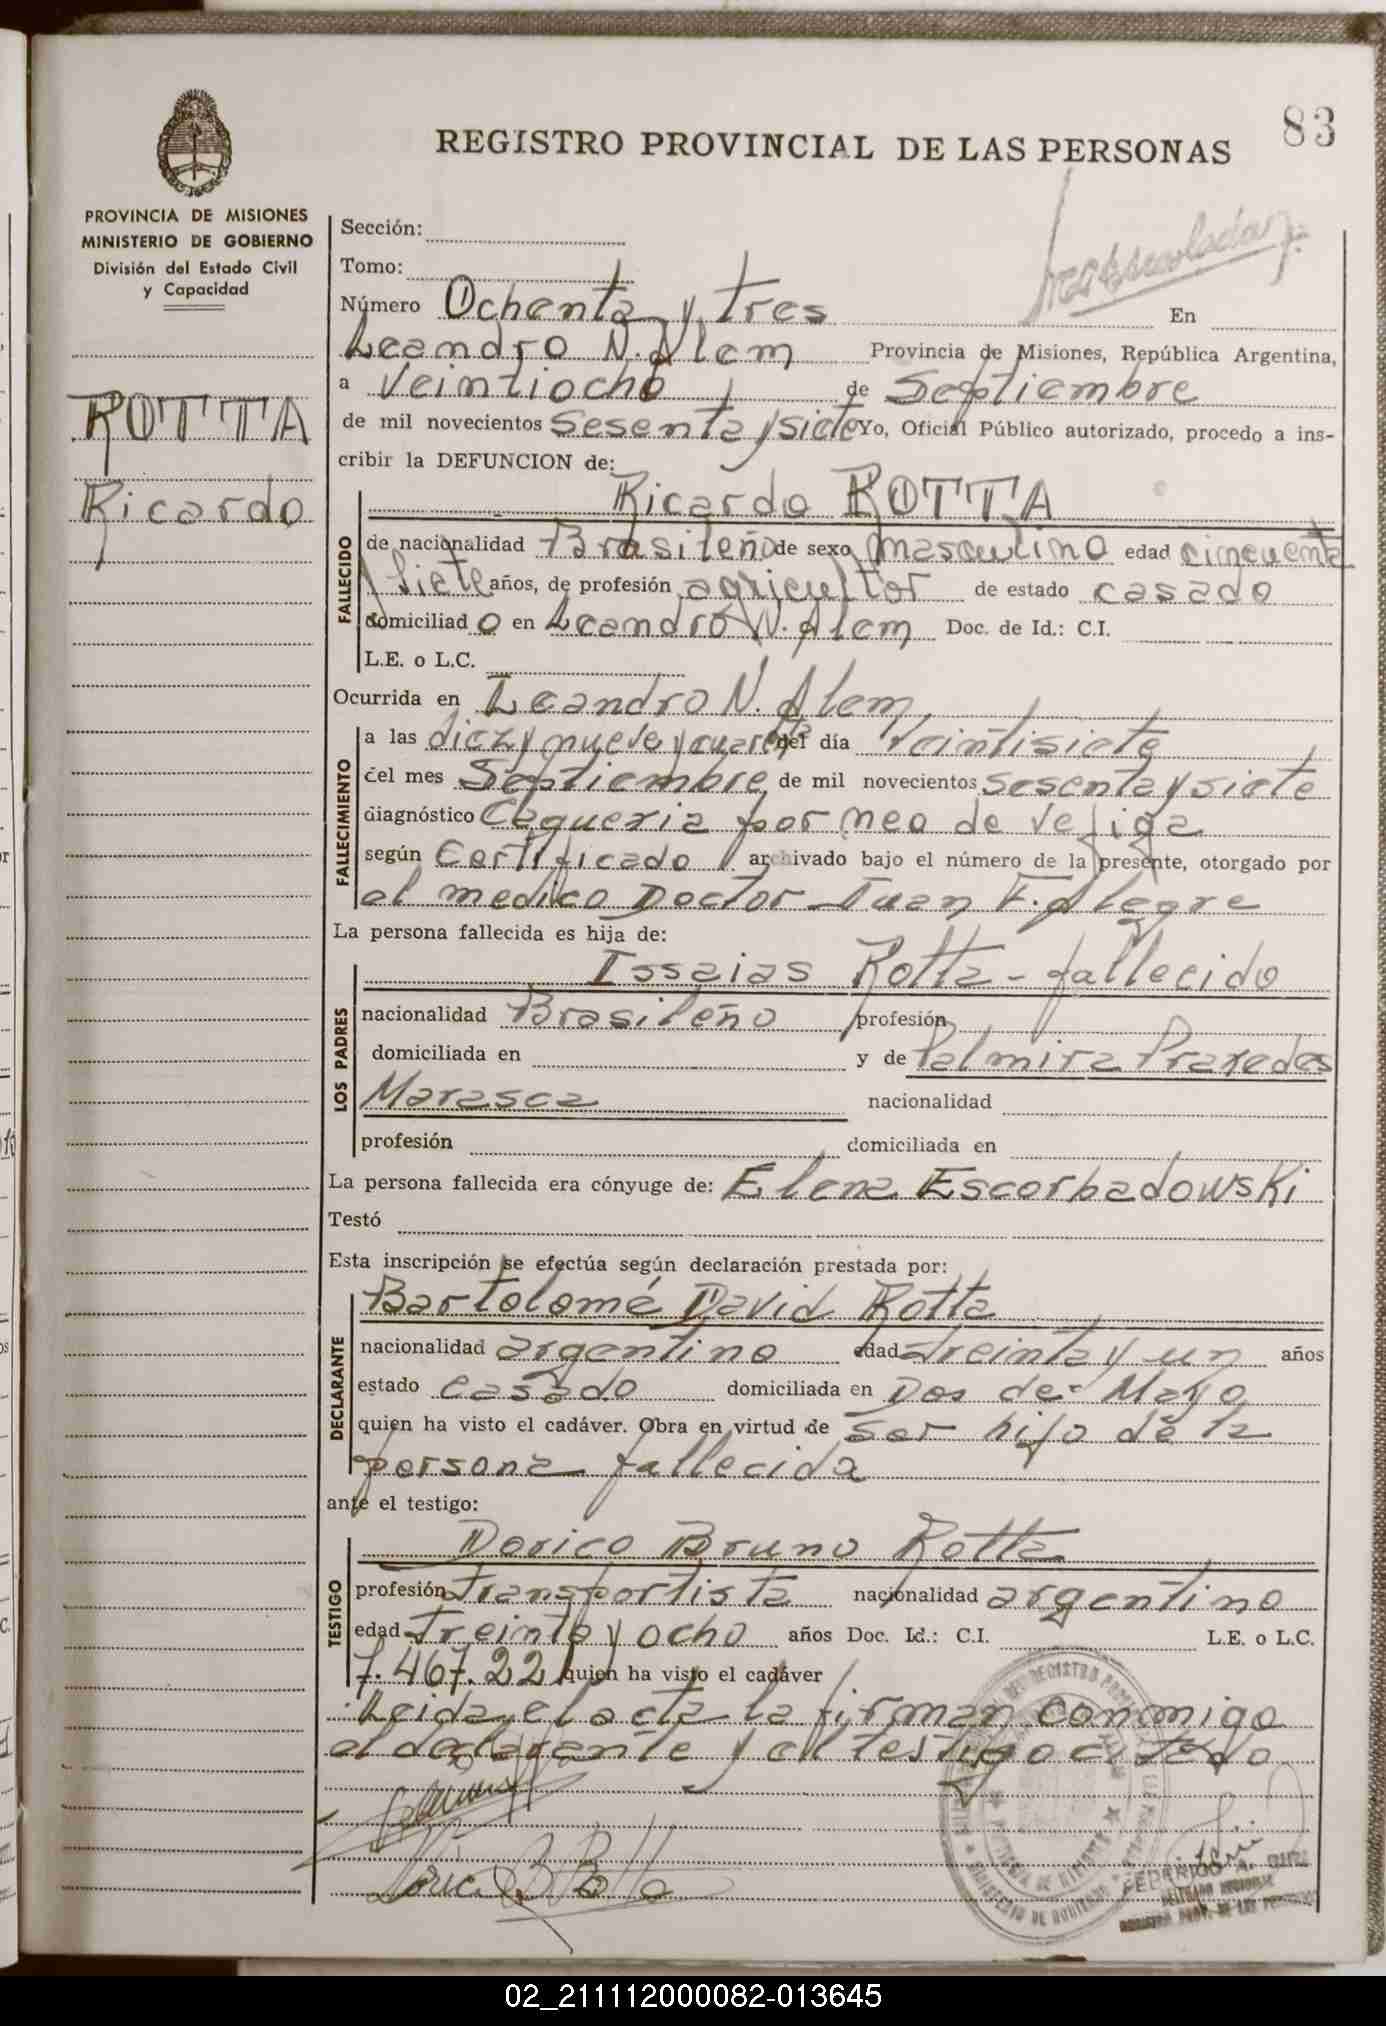 83
REGISTRO PROVINCIAL DE LAS PERSONAS
PROVINCIA DE MISIONES
MINISTERIO DE GOBIERNO
División del Estado Civil
y Capacidad
ROTTA
Ricardo
Sección:
Tomo:
Número Ochenta y tres En
Leandro N. Alem Provincia de Misiones, República Argentina,
a veintiocho de Septiembre
de mil novecientos Sesenta y siete Yo, Oficial Público autorizado, procedo a ins-
cribir la DEFUNCION de:
FALLECIDO
Ricardo ROTTA
de nacionalidad Brasileño de sexo masculino edad cincuenta
y siete años, de profesión agricultor de estado casado
domiciliado en Leandro N. Alem Doc. de Id.: C.I.
L.E. o L.C.
Ocurrida en Leandro N. Alem,
FALLECIMIENTO
a las diez y nueve y cuarenta del día veintisiete
del mes Septiembre de mil novecientos sesenta y siete
diagnóstico Caquexia por neo de vejiga
según Certificado archivado bajo el número de la presente, otorgado por
el medico Doctor Juan F. Alegre
La persona fallecida es hija de:
LOS PADRES
Issaias Rotta - fallecido
nacionalidad Brasileño profesión
domiciliada en y de Palmira Praxedes
Marasca nacionalidad
profesión domiciliada en
La persona fallecida era cónyuge de: Elena Escorbadowski
Testó
Esta inscripción se efectúa según declaración prestada por:
DECLARANTE
Bartolomé David Rotta
nacionalidad argentino edad treinta y un años
estado casado domiciliada en Dos de Mayo
quien ha visto el cadáver. Obra en virtud de ser hijo de la
persona fallecida
ante el testigo:
TESTIGO
Dorico Bruno Rotta
profesión transportista nacionalidad argentino
edad treinta y ocho años Doc. Id.: C.I. L.E. o L.C.
7.467.221 quien ha visto el cadáver
Leida el acta la firman conmigo
el declarante y el testigo citado
FEDERICO A.
02_211112000082-013645